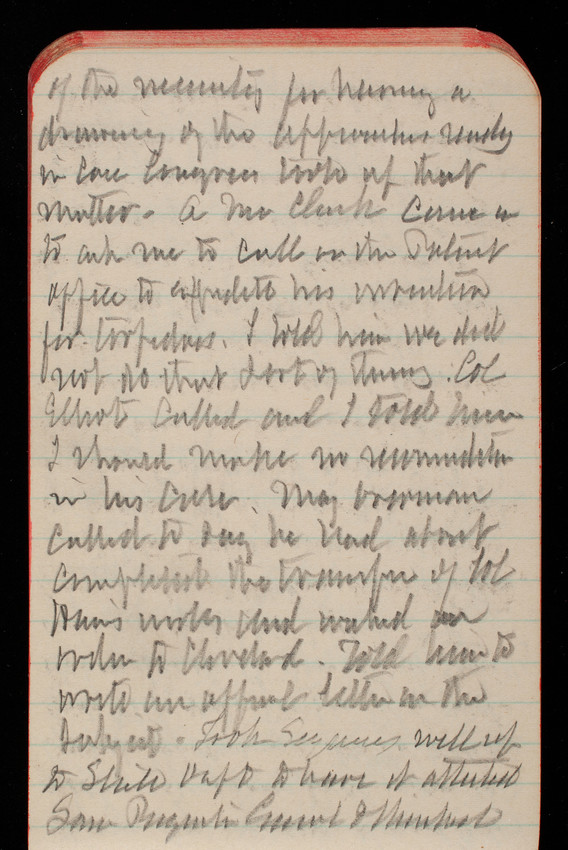 of the necessity for having a
drawing of the approaches ready
in case Congress took up that
matter. A Mr Clark came in
to ask me to call on the Patent
office to expedite his invention
for torpedoes. I told him we did
not do that sort of thing. Col
Elliot called and I told him
I should make no recommendation
in his case. Maj Overman
called to day he had about
completed the transfer of Col
works and wanted an
order to Cleveland. Told him to
write an official letter on the
subject. Took will up
to State Dept to have it attested
Saw